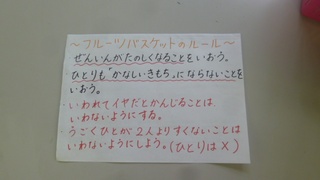 ～フルーツバスケットのルール～
ぜんいんがたのしくなることをいおう。
ひとりも"かなしいきもち"にならないことを
いおう。
・いわれてイヤだとかんじることは
いわないようにする。
・うごくひとが2人よりすくないことは
いわないようにしよう。(ひとりは×)